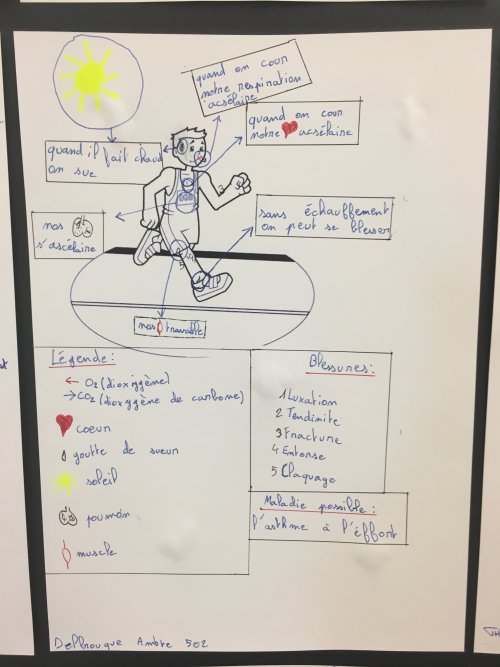 quand on cour
notre respiration
acsélaire
quand on cour
notre acsélaire
quand il fait chaud
on sue
sans échauffement
on peut se blesser
nos
s'ascélaire
nos travaille
Légende:
← O2 (dioxigène)
→ CO2 (dioxygène de carbone)
coeur
goutte de sueur
soleil
poumon
muscle
Blessures:
1 Luxation
2 Tendinite
3 Fracture
4 Entorse
5 Claquage
Maladie possible:
l'asthme à l'éffort
Delbrouque Ambre 502